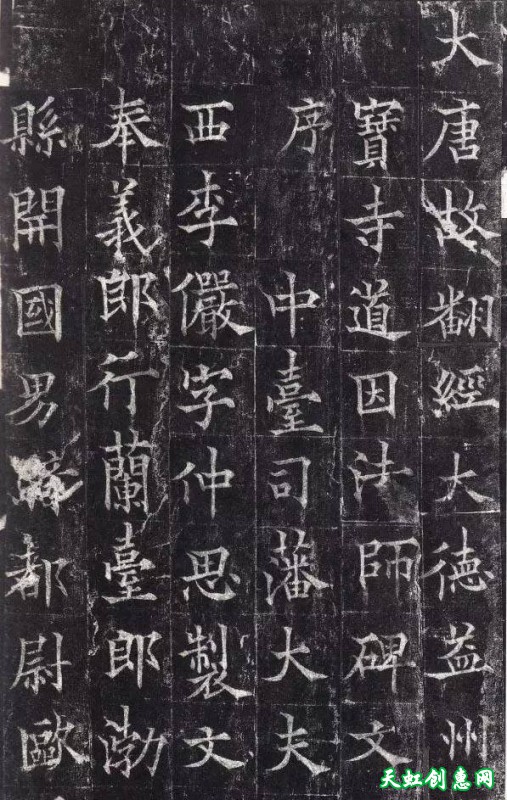 大唐故翻經大德益州
寶寺道因法師碑文
序中臺司藩大夫
西李儼字仲思製文
奉義郎行蘭臺郎渤
縣開國男騎都尉歐
天虹创惠网